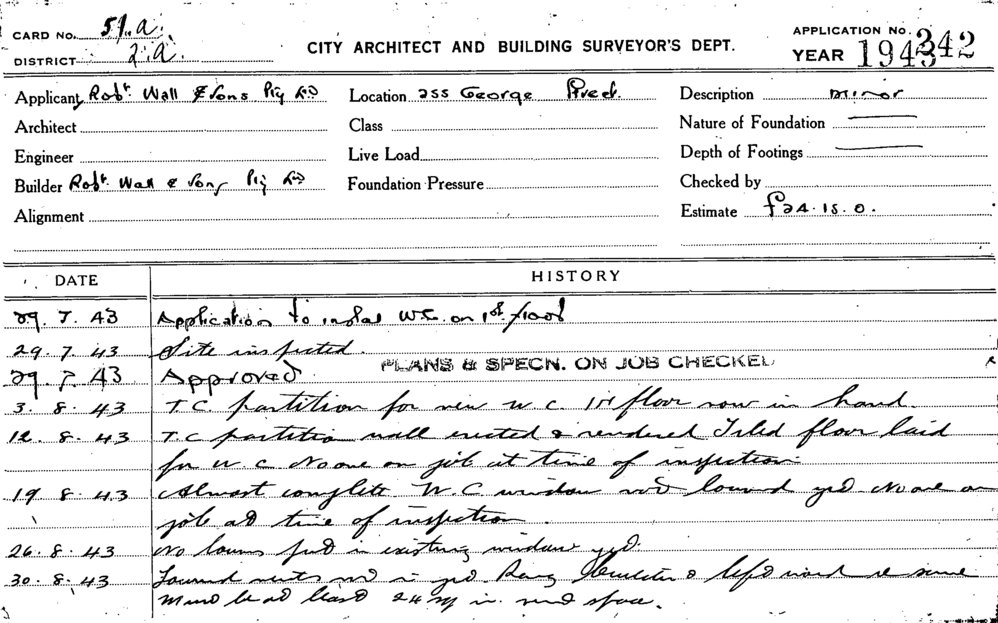 CARD NO. 51.a.
DISTRICT 2.a.
CITY ARCHITECT AND BUILDING SURVEYOR'S DEPT.
APPLICATION NO. 242
YEAR 1943
Applicant Robt. Wall & Sons Pty Ltd
Location 255 George Street.
Description minor
Architect
Class
Nature of Foundation
Engineer
Live Load
Depth of Footings
Builder Robt. Wall & Sons Pty Ltd
Foundation Pressure
Checked by
Alignment
Estimate £24.15.0.
DATE HISTORY
29.7.43 Application to instal W.C. on 1st floor
29.7.43 Site inspected.
PLANS & SPECN. ON JOB CHECKED
29.7.43 Approved.
3.8.43 T.C. partition for new W.C. 1st floor now in hand
12.8.43 T.C partition wall erected & rendered Tiled floor laid
for W.C No one on job at time of inspection
19 8.43 Almost complete W.C window not louvred yet No one on
job at time of inspection.
26.8.43 No louvres put in existing window yet
30.8.43 Louvred vents not in yet. Rang builders & left word re same
Must be at least 24 sq in. vent space.